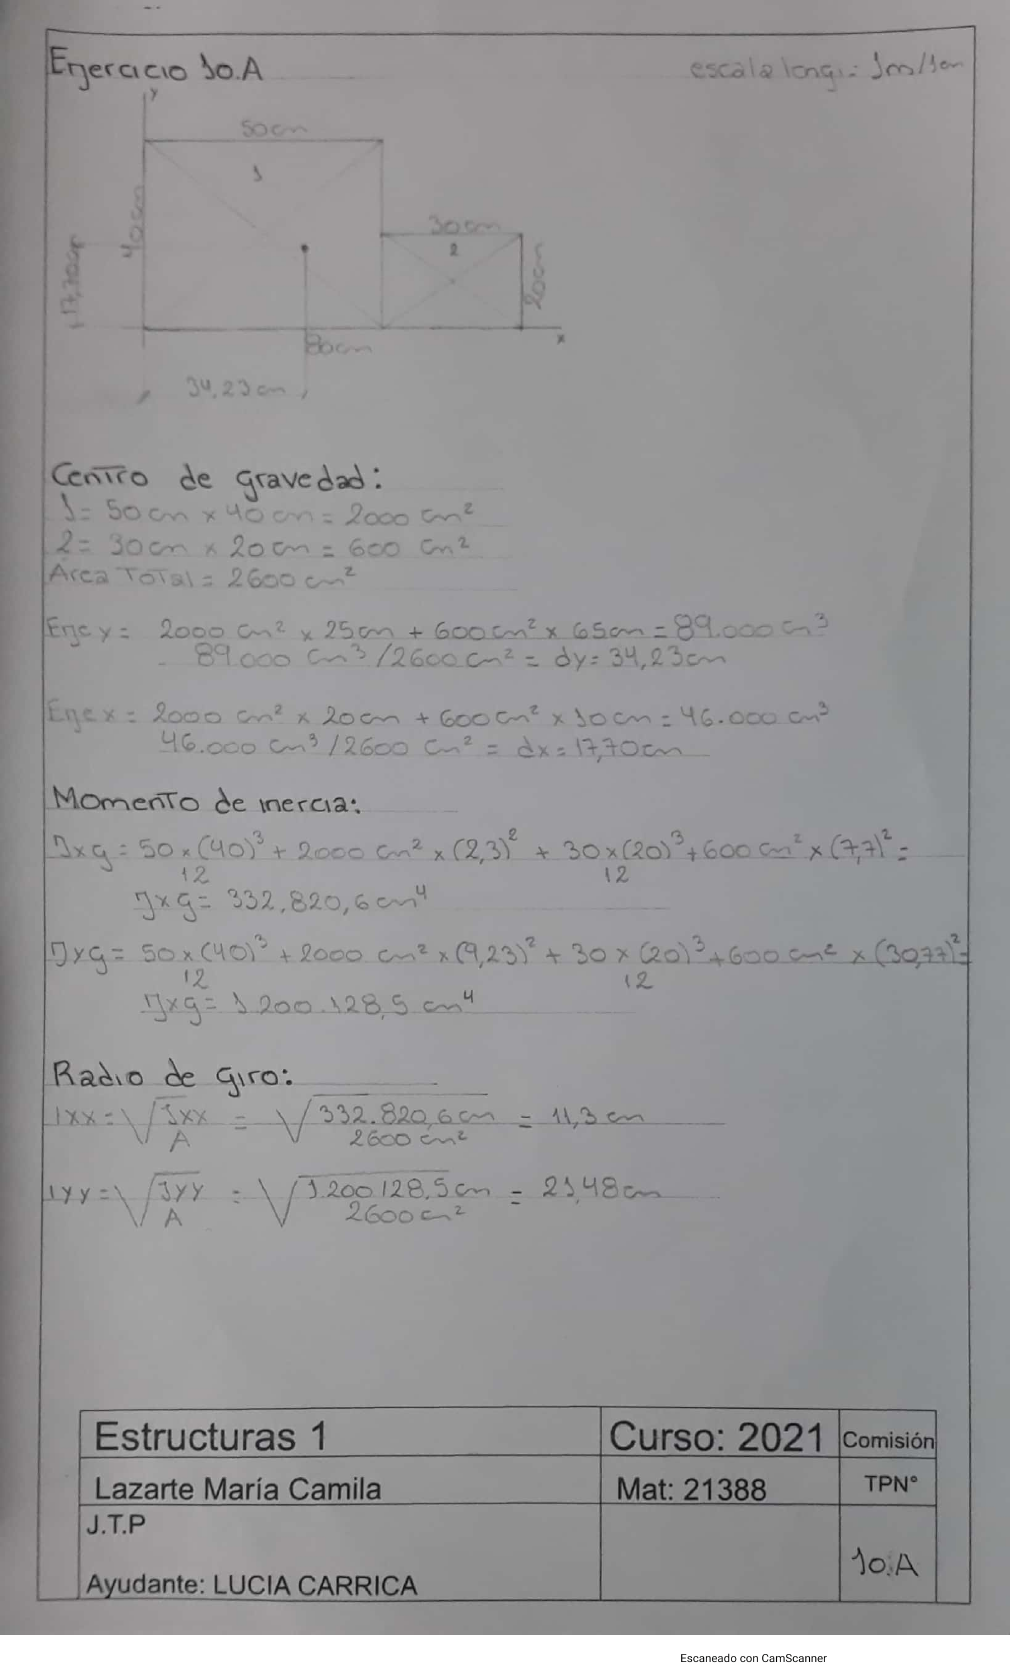 Ejercicio 10.A
escala long.: 1m/1cm
y
50cm
1
40cm
30cm
2
17,70cm
20cm
80cm
x
34,23cm
Centro de gravedad:
1= 50cm x 40cm = 2000 cm²
2= 30cm x 20cm = 600 cm²
Area Total = 2600cm²
Eje y = 2000 cm² x 25cm + 600cm² x 65cm = 89.000cm³
89.000 cm³/2600cm² = dy= 34,23cm
Eje x = 2000 cm² x 20cm + 600cm² x 10cm = 46.000 cm³
46.000 cm³/2600 cm² = dx= 17,70cm
Momento de inercia:
Jxg = 50x(40)³ + 2000 cm² x (2,3)² + 30x(20)³ + 600cm² x (7,7)² =
12 12
Jxg = 332.820,6cm⁴
Jyg = 50x(40)³ + 2000 cm² x (9,23)² + 30 x (20)³ + 600 cm² x (30,77)² =
12 12
Jxg = 1.200.128,5 cm⁴
Radio de giro:
ixx = √Jxx = √332.820,6cm = 11,3cm
A 2600cm²
iyy = √Jyy = √1.200.128,5cm = 21,48cm
A 2600cm²
Estructuras 1
Curso: 2021
Comisión
Lazarte María Camila
Mat: 21388
TPN°
J.T.P
10.A
Ayudante: LUCIA CARRICA
Escaneado con CamScanner